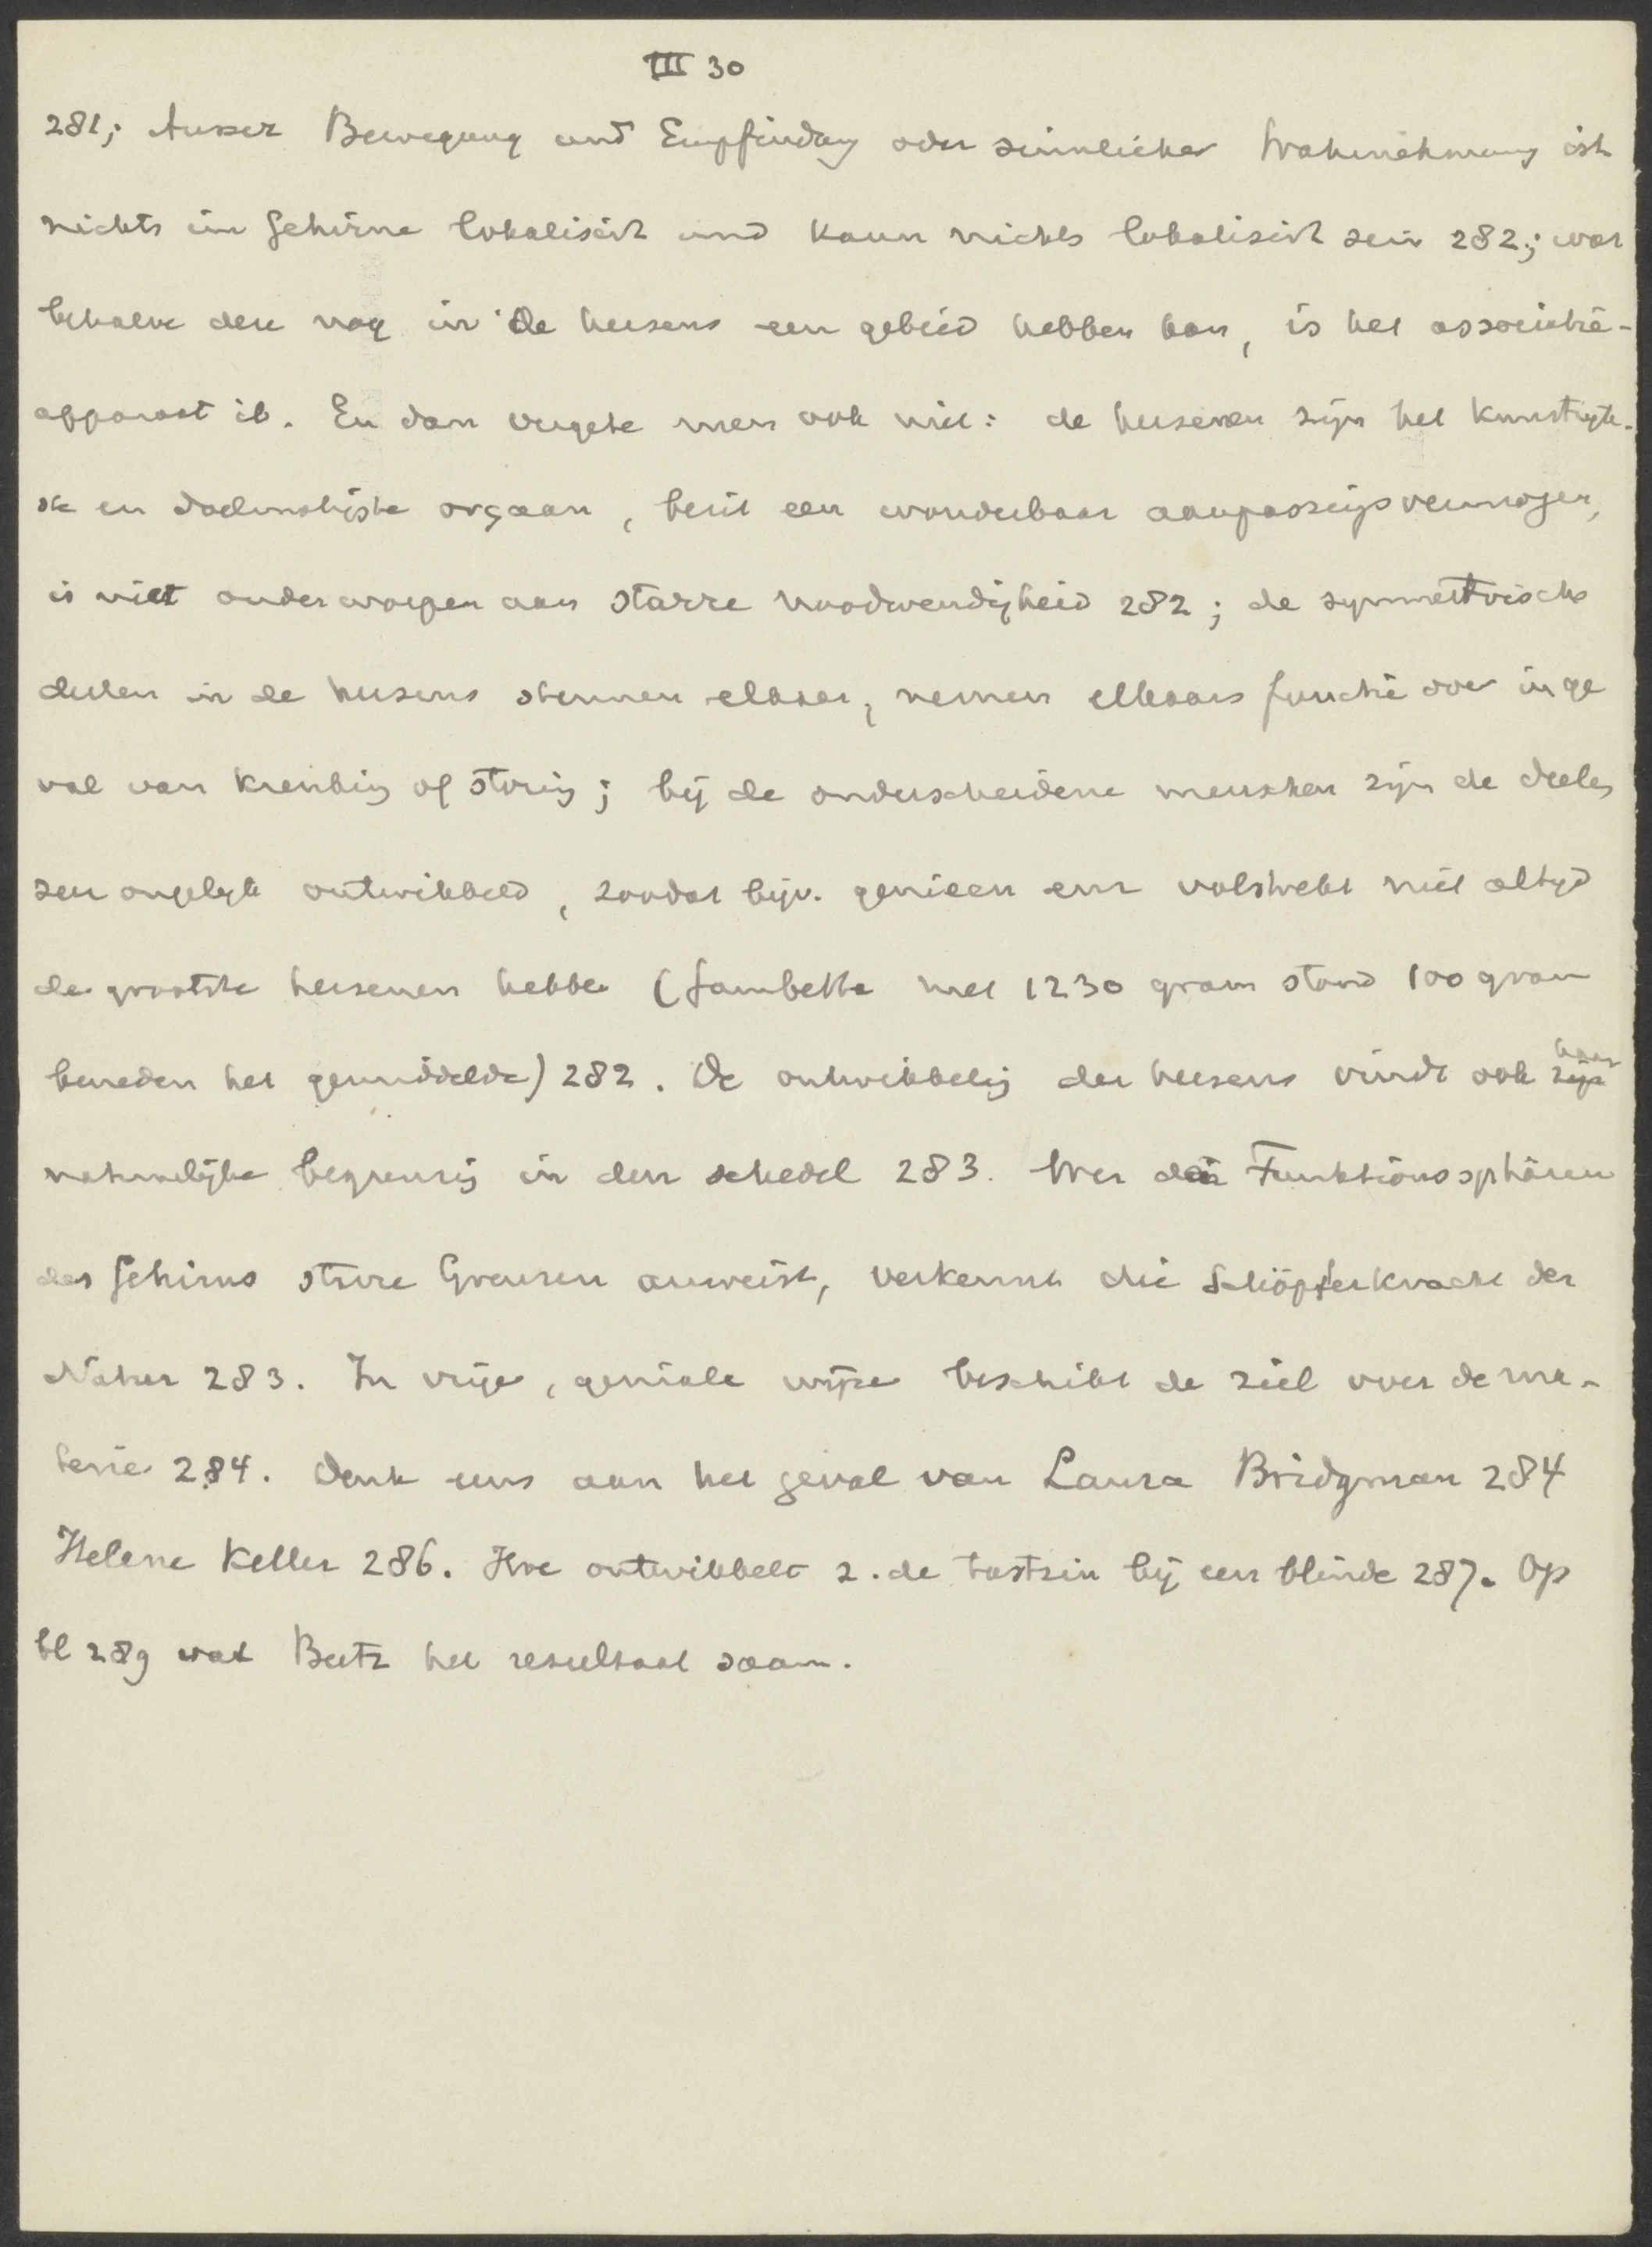 III 30
281; Ausser Bewegung und Empfindung oder sinnlicher Wahrnehmung ist
nichts im Gehirne lokalisirt und kann nichts lokalisirt sein 282; wat
behalve deze nog in de hersens een gebied hebben kan, is het associatie-
apparaat ib. En dan vergete men ook niet: de hersenen zijn het kunstrijk-
ste en doelmatigste orgaan, bezit een wonderbaar aanpassingsvermogen,
is niet onderworpen aan starre noodwendigheid 282; de symmetrische
deelen in de hersens steunen elkaar, nemen elkaars functie over in ge
val van krenking of storing; bij de onderscheidene menschen zijn de deelen
zeer ongelijk ontwikkeld, zoodat bijv. genieen enz volstrekt niet altijd
de grootste hersenen hebben (Gambetta met 1230 gram stond 100 gram
beneden het gemiddelde) 282. De ontwikkeling der hersens vindt ook zijn haar
natuurlijke begrenzing in den schedel 283. Wer den Funktionssphären
des Gehirns starre Grenzen anweist, verkennt die Schöpferkracht der
Natur 283. In vrije, geniale wijze beschikt de ziel over de ma-
terie 284. Denk eens aan het geval van Laura Bridgman 284
Helene Keller 286. Hoe ontwikkelt z. de tastzin bij een blinde 287. Op
bl 289 vat Beetz het resultaat saam.